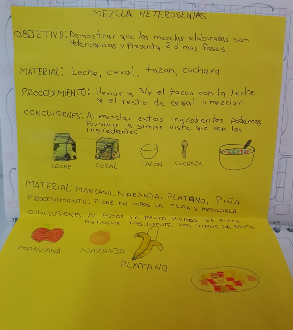 MEZCLA HETEROGENEAS
OBJETIVO: Demostrar que las mezclas elaboradas son
heterogeneas y presenta 2 ó mas fases.
MATERIAL: Leche, cereal, tazon, cuchara
PROCEDIMIENTO: llenar y 3/4 el tazon con la leche
y el resto de cereal y mezclar
CONCLUSIONES: Al mezclar estos ingredientes podemos
a simple vista que son los
ingredientes
LECHE CEREAL TAZON CUCHARA
MATERIAL: MANZANA, NARANJA, PLATANO, PIÑA
PROCEDIMIENTO: PICAR EN TROZOS LA FRUTA Y MEZCLARLA
CONCLUSIONES: AL
MANZANA NARANJA
PLATANO